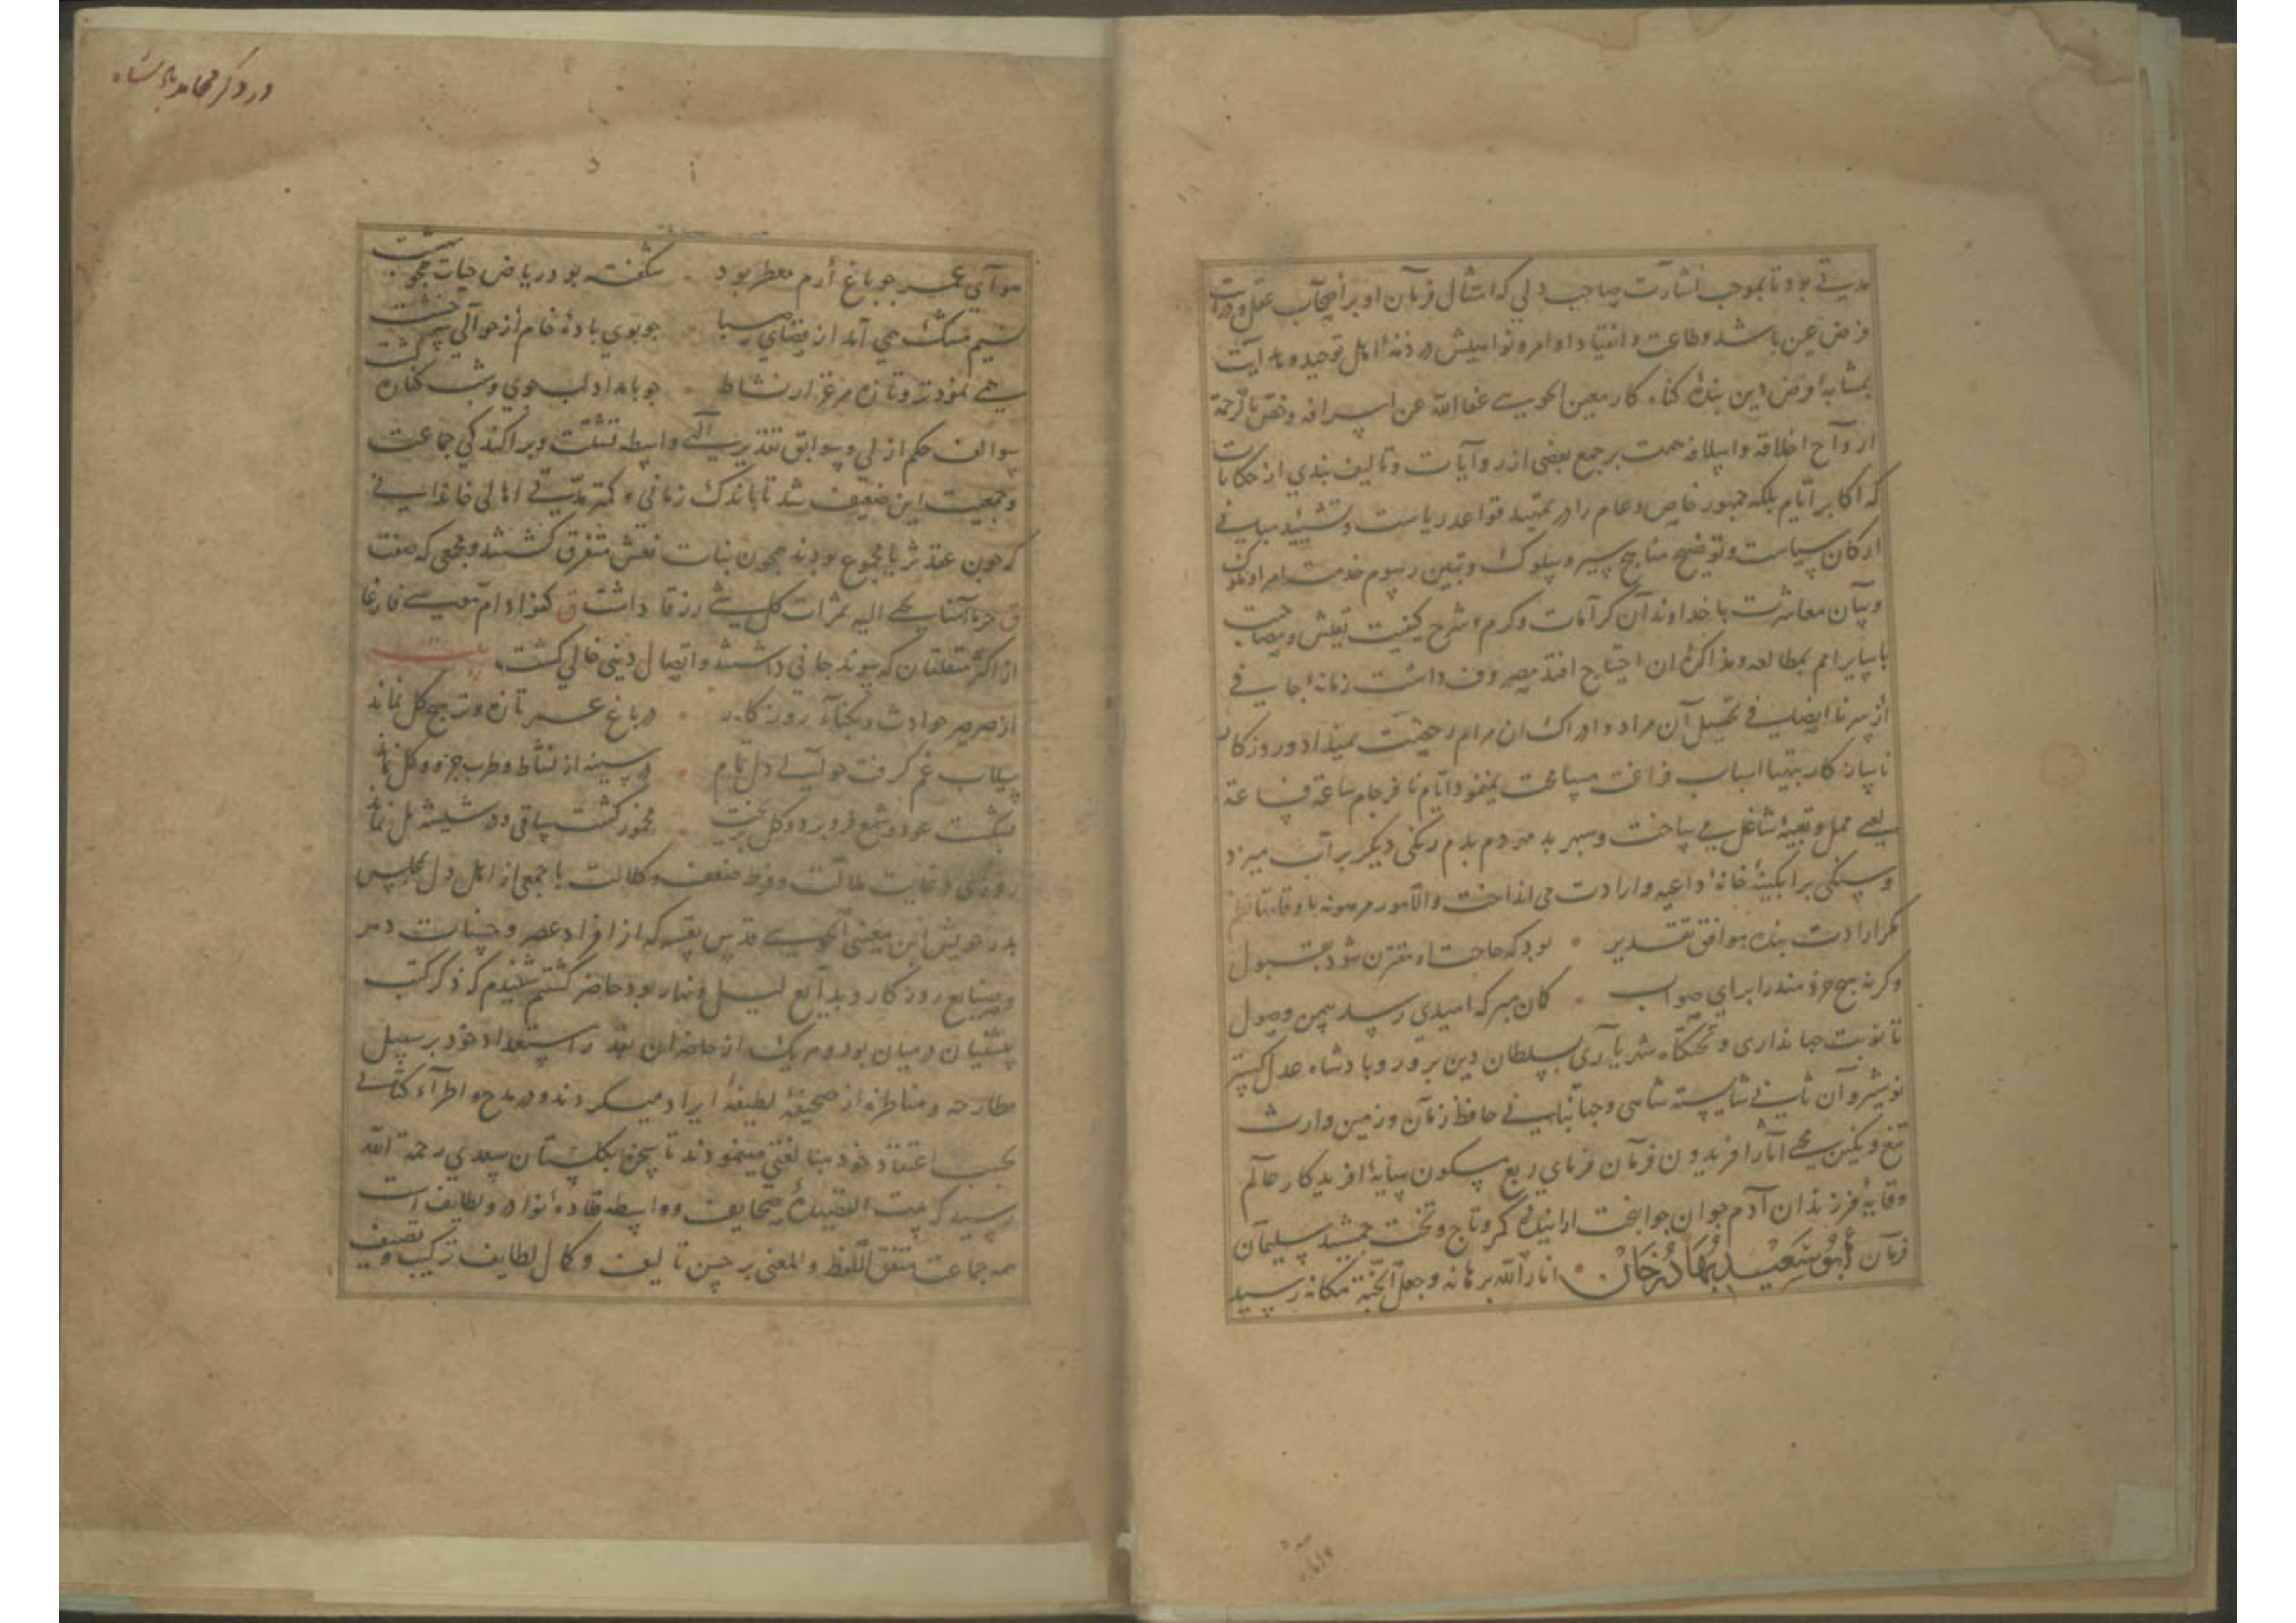 مدتی بود تا بموجب اشارت صاحب دلی که امتثال فرمان او بر اصحاب عقل و درایت
فرض عین باشد و طاعت و انقیاد اوامر و نواهیش در ذمهٔ اهل توحید و هدایت
بمثابهٔ فرض دین بندهٔ گناه کار معین الجوینی عفا الله عن اسرافه و خص بالرحمة
ارواح اخلافه و اسلافه همت بر جمع بعضی از روایات و تالیف بندی از حکایات
که اکابر ایام بلکه جمهور خاص و عام را در تمهید قواعد ریاست و تشیید مبانی
ارکان سیاست و توضیح مناهج سیر و سلوک و تبیین رسوم خدمت امرا و ملوک
و بیان معاشرت با خداوندان کرامات و کرم و شرح کیفیت تعیش و مصاحبت
با سایر امم بمطالعه و مذاکرهٔ ان احتیاج افتد مصروف داشت زمانه اجابی فی
از سر نا انصافی تحصیل آن مراد و ادراک ان مرام رخصت نمیداد و روزکار
ناسازکار بتهیا اسباب فراغت مسامحت نمینمود و ایام نا فرجام ساعة فساعة
می ساخت و سپهر بد مهر دم بدم رنکی دیکر بر آب میزد
و سنکی بر ابکینهٔ خانهٔ داعیه و ارادت می انداخت و الامور مرهونة باوقاتها نظم
مکر ارادت بنده موافق تقدیر • بود که حاجت او مقترن شود بقبول
وکرنه هیچ خردمند را برای صواب • کمان مبر که امیدی رسد بیمن وصول
تا نوبت جهانداری و تختکاه شهریاری بسلطان دین پرور و پادشاه عدل کستر
نوشیروان ثانی شایستهٔ شاهی و جهانبانی حافظ زمان و زمین وارث
تیغ و نکین محیی آثار افریدون فرمان فرمای ربع مسکون سایهٔ افریدکار عالم
وقایهٔ فرزندان آدم جوان جوانبخت ارایندهٔ کمر و تاج و تخت جمشید سلیمان
فرمان ابو سعید بهادر خان • انار الله برهانه و جعل الجنة مکانه رسید
در ذکر محامد پادشاه
هوای عمر جو باغ ارم معطر بود • شکفته بود ریاض حیات همجو بهشت
نسیم مشک همی آمد از فضای صبا • جو بوی بادهٔ خام از حوالی سر خشت
همی نمود تر و تازه مرغزار نشاط • جو بامداد لب جوی و شب کنارهٔ کشت
سوالف حکم ازلی و سوابق تقدیر الهی واسطهٔ تشتت و پراکندکی جماعت
و جمعیت این ضعیف شد تا باندک زمانی و کمتر مدتی اهالی خاندانی
که جون عقد ثریا مجموع بودند همجون بنات نعش متفرق کشتند و مجمعی که صفت
حرما آمنا یجبی الیه ثمرات کل شیء رزقا داشت کفؤاد ام موسی فارغا
از اکثر متعلقان که پیوند جانی داشتند و اتصال دینی خالی کشت بیت
از صرصر حوادث و نکبا روزکار • در باغ عمر تازه و تر هیج کل نماند
سیلاب غم کرفت حوالی دل تمام • در سینه از نشاط و طرب جزو و کل نماند
بشکست عود و شمع فرو مرد و کل بریخت • مخمور کشت ساقی و در شیشه مل نماند
روزی در غایت ملالت و فرط ضعف و کلالت با جمعی از اهل دل بمجلس
پدر خویش این معین الجوینی قدس نفسه که از افراد عصر و حسنات دهر
و صنایع روزکار و بدایع لیل و نهار بود حاضر کشتم شنیدم که ذکر کتب
پیشینیان در میان بود و هریک از حاضران بقدر استعداد خود بر سبیل
مطارحه و مناظره از صحیفهٔ لطیفهٔ ایراد میکردند و در مدح و اطراء کتابی
بحسب اعتقاد خود مبالغتی مینمودند تا سخن بکلستان سعدی رحمه الله
رسید که بیت القصیدهٔ صحایف و واسطهٔ قلادهٔ نوادر و لطایف است
همه جماعت متفق اللفظ و المعنی بر حسن تالیف و کمال لطایف ترکیب و تصنیف